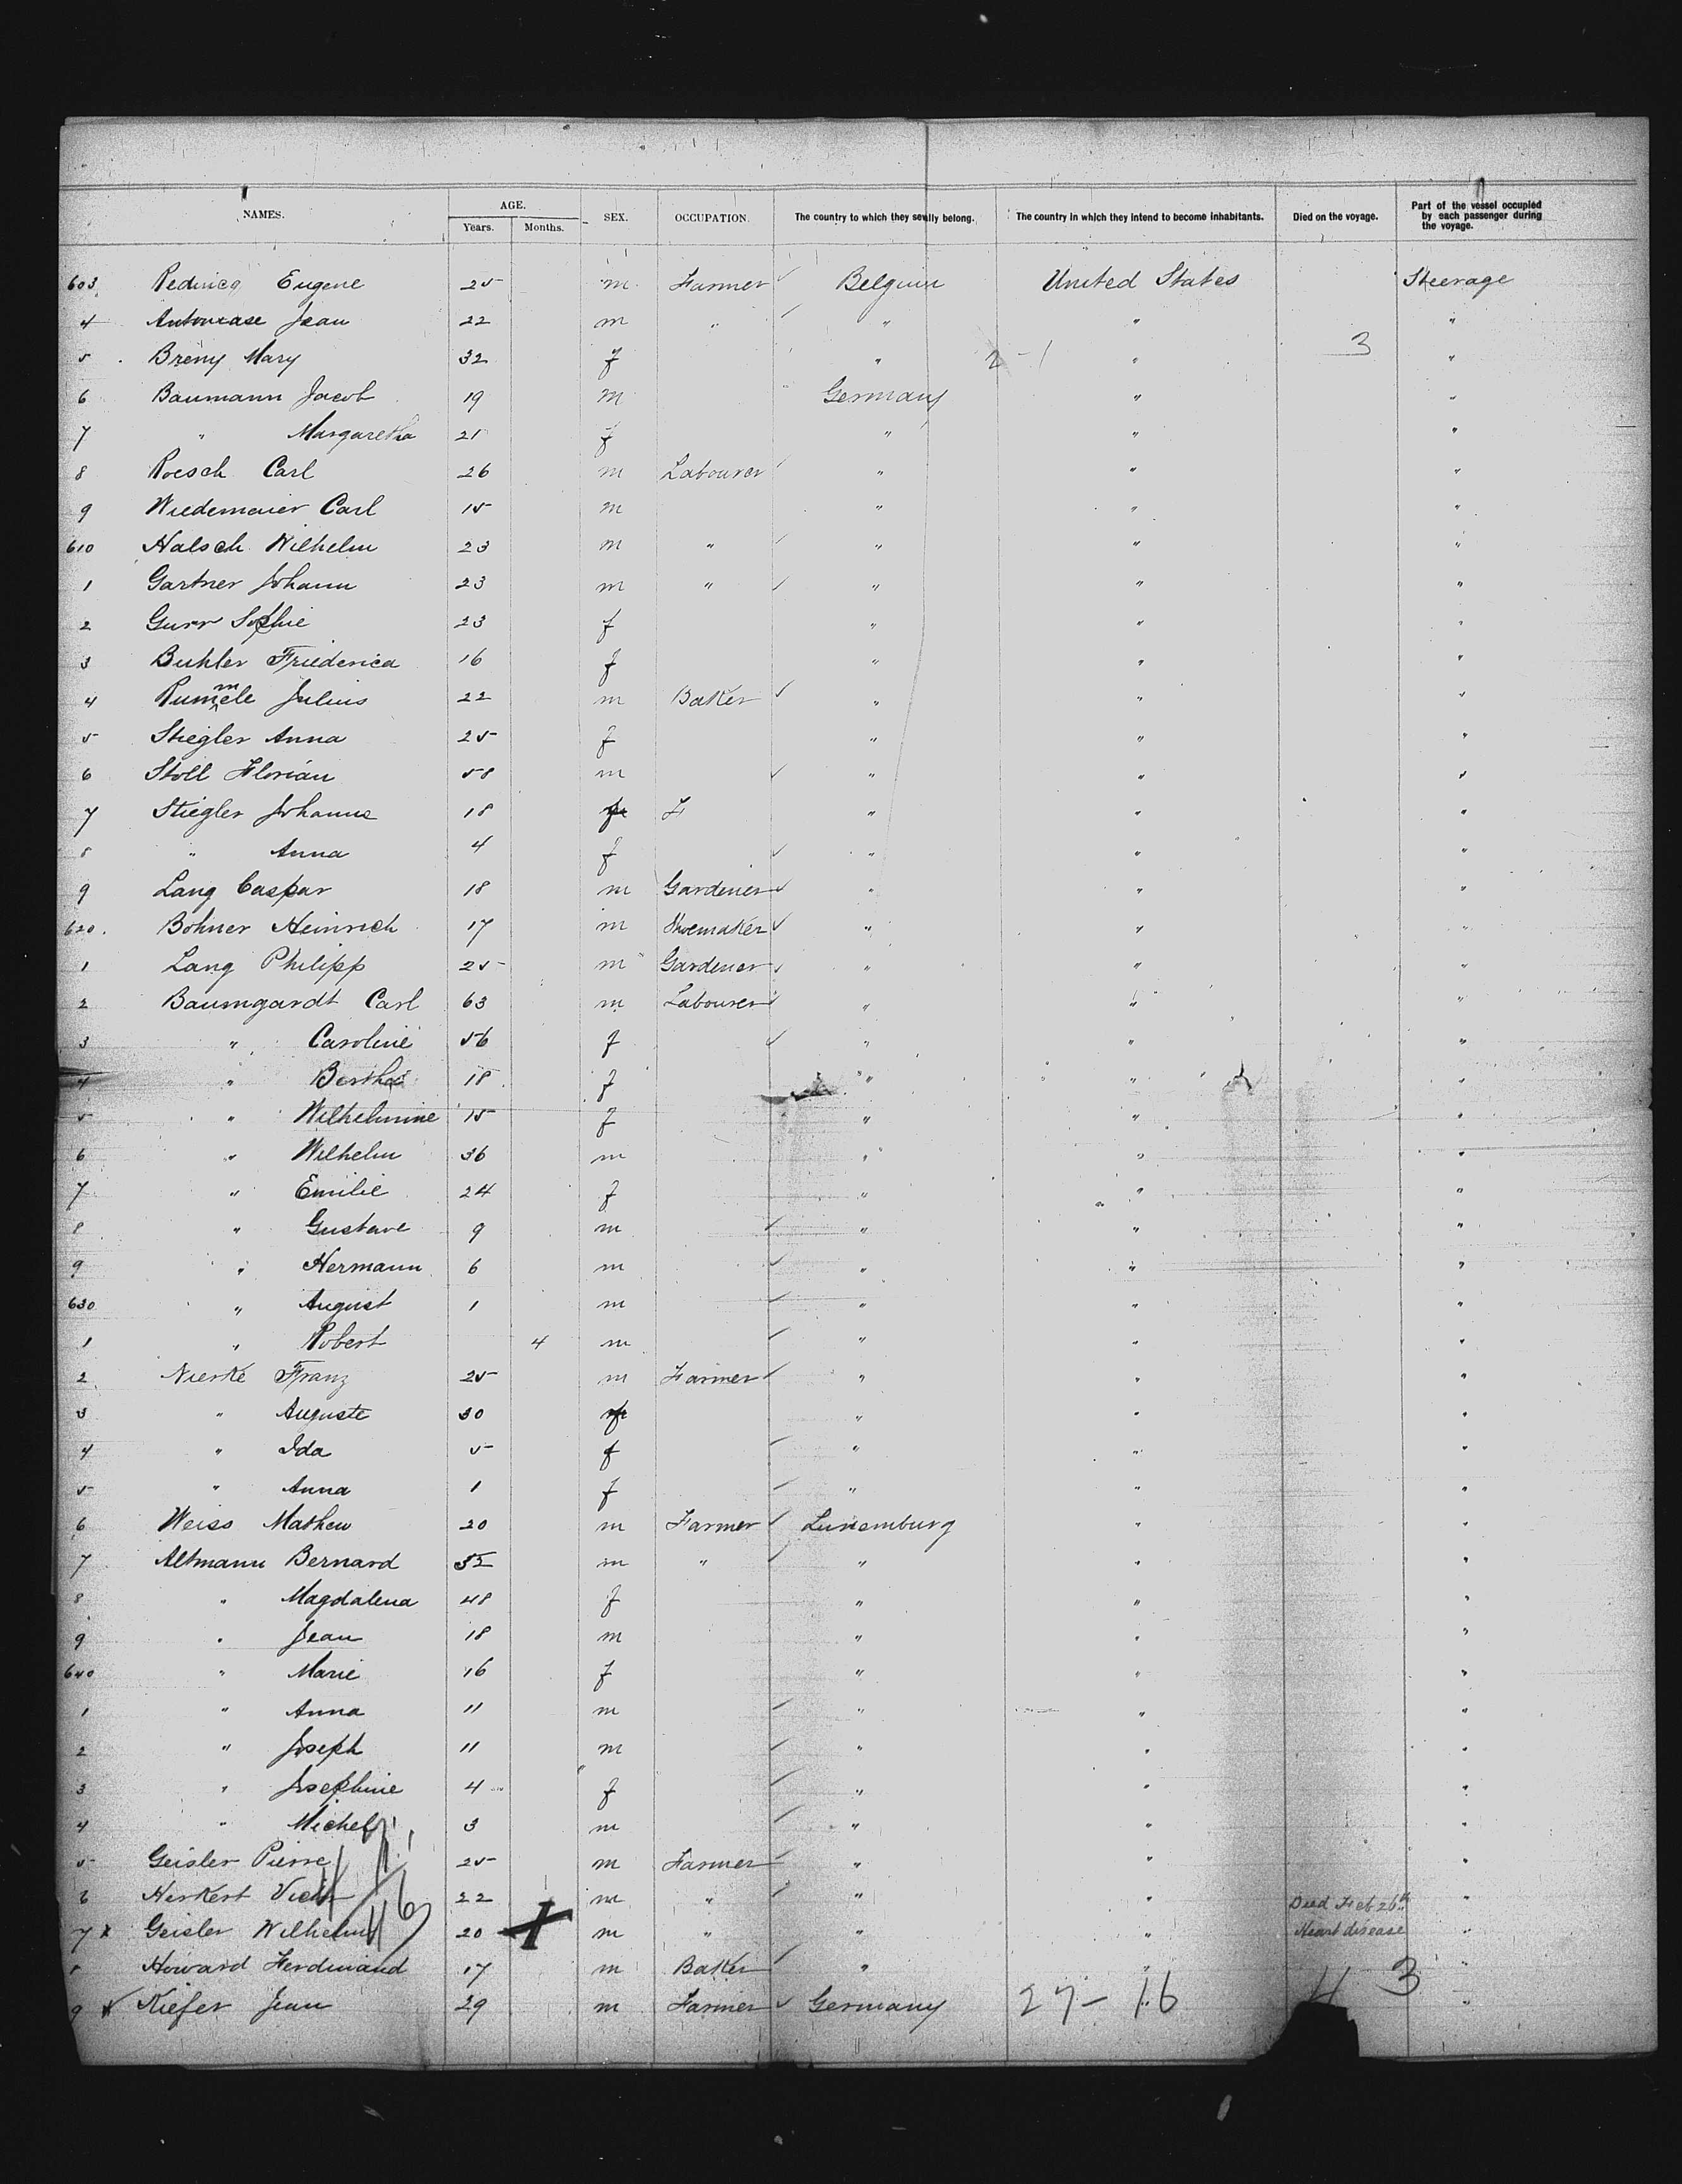 NAMES. AGE. SEX. OCCUPATION. The country to which they sev'lly belong. The country in which they intend to become inhabitants. Died on the voyage. Part of the vessel occupied by each passenger during the voyage.
Years. Months.
603 Eugene 25 m Farmer Belgium United States Steerage
4 Jean 22 m " " " "
5 Breny Mary 32 f " 2-1 " 3 "
6 Baumann Jacob 19 m Germany " "
7 " Margaretha 21 f " " "
8 Roesch Carl 26 m Labourer " " "
9 Wiedemaier Carl 15 m " " "
610 Halsch Wilhelm 23 m " " " "
1 Gartner Johann 23 m " " " "
2 Gurr Sophie 23 f " " "
3 Buhler Friederica 16 f " " "
4 Rummele Julius 22 m Baker " " "
5 Stiegler Anna 25 f " " "
6 Stoll Florian 58 m " " "
7 Stiegler Johanna 18 f F " " "
8 " Anna 4 f " " "
9 Lang Caspar 18 m Gardener " " "
620. Bohner Heinrich 17 m Shoemaker " " "
1 Lang Philipp 25 m Gardener " " "
2 Baumgardt Carl 63 m Labourer " " "
3 " Caroline 56 f " " "
4 " Bertha 18 f " " "
5 " Wilhelmine 15 f " " "
6 " Wilhelm 36 m " " "
7 " Emilie 24 f " " "
8 " Gustave 9 m " " "
9 " Hermann 6 m " " "
630 " August 1 m " " "
1 " Robert 4 m " " "
2 Nierke Franz 25 m Farmer " " "
3 " Auguste 30 f " " "
4 " Ida 5 f " " "
5 " Anna 1 f " " "
6 Weiss Mathew 20 m Farmer Luxemburg " "
7 Altmann Bernard 52 m " " " "
8 " Magdalena 48 f " " "
9 " Jean 18 m " " "
640 " Marie 16 f " " "
1 " Anna 11 m " " "
2 " Joseph 11 m " " "
3 " Josephine 4 f " " "
4 " Michel 3 m " " "
5 Geisler Pierre 25 m Farmer " " "
6 Herkert Victor 22 m " " " Died Feb 26th "
7 x Geisler Wilhelm 20 + m " " " Heart disease "
8 Howard Ferdinand 17 m Baker " " "
9 x Kiefer Jean 29 m Farmer Germany 27-16 " 4 3 "